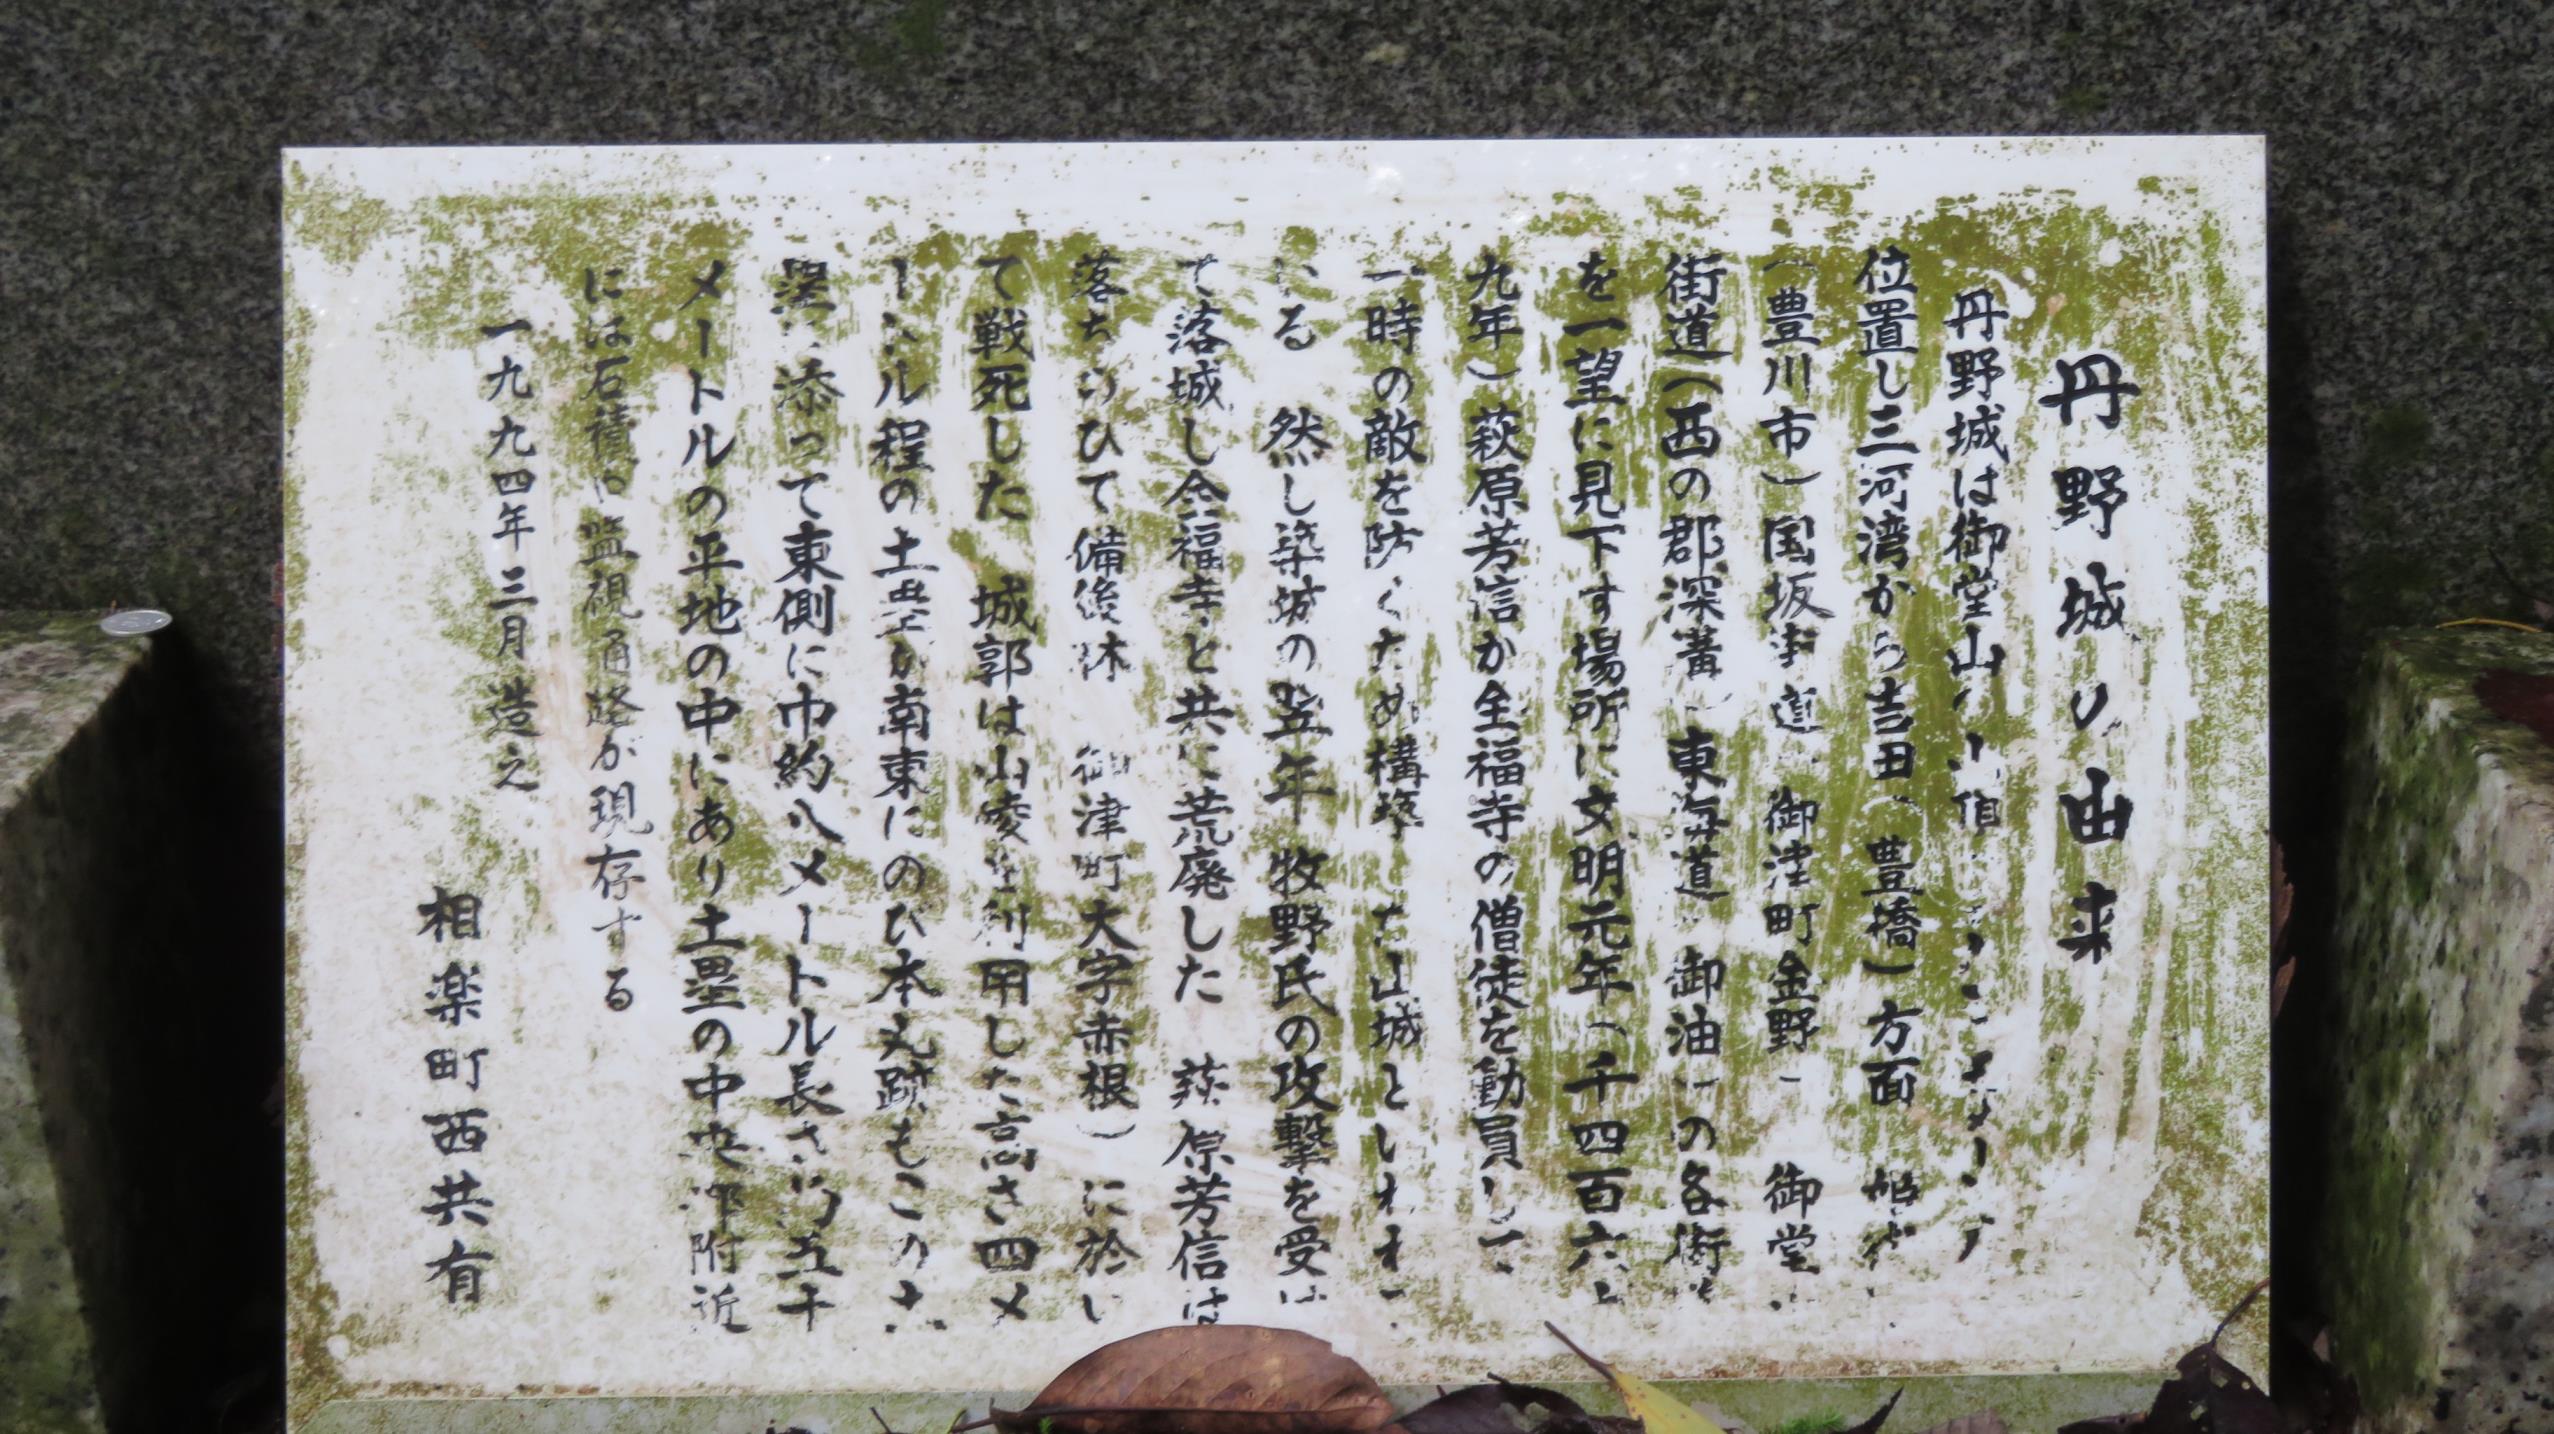 丹野城の由来
丹野城は御堂山の山頂
位置し三河湾から吉田（豊橋）方面
（豊川市）国坂街道（御津町金野）御堂
街道（西の郡深溝）東海道（御油）の各街
を一望に見下す場所に文明元年（千四百六
九年）萩原芳信が全福寺の僧徒を動員して
一時の敵を防ぐため構築した山城といわれ
いる 然し築城の翌年 牧野氏の攻撃を受け
て落城し全福寺と共に荒廃した 萩原芳信は
落ちのびて備後 御津町大字赤根）に於い
て戦死した 城郭は山凌を利用した高さ四メ
ートル程の土塁が南東にのび本丸跡もこの土
塁に添って東側に巾約八メートル長さ約五十
メートルの平地の中にあり土塁の中央部附近
には石積の監視通路が現存する
一九九四年三月造之
相楽町西共有